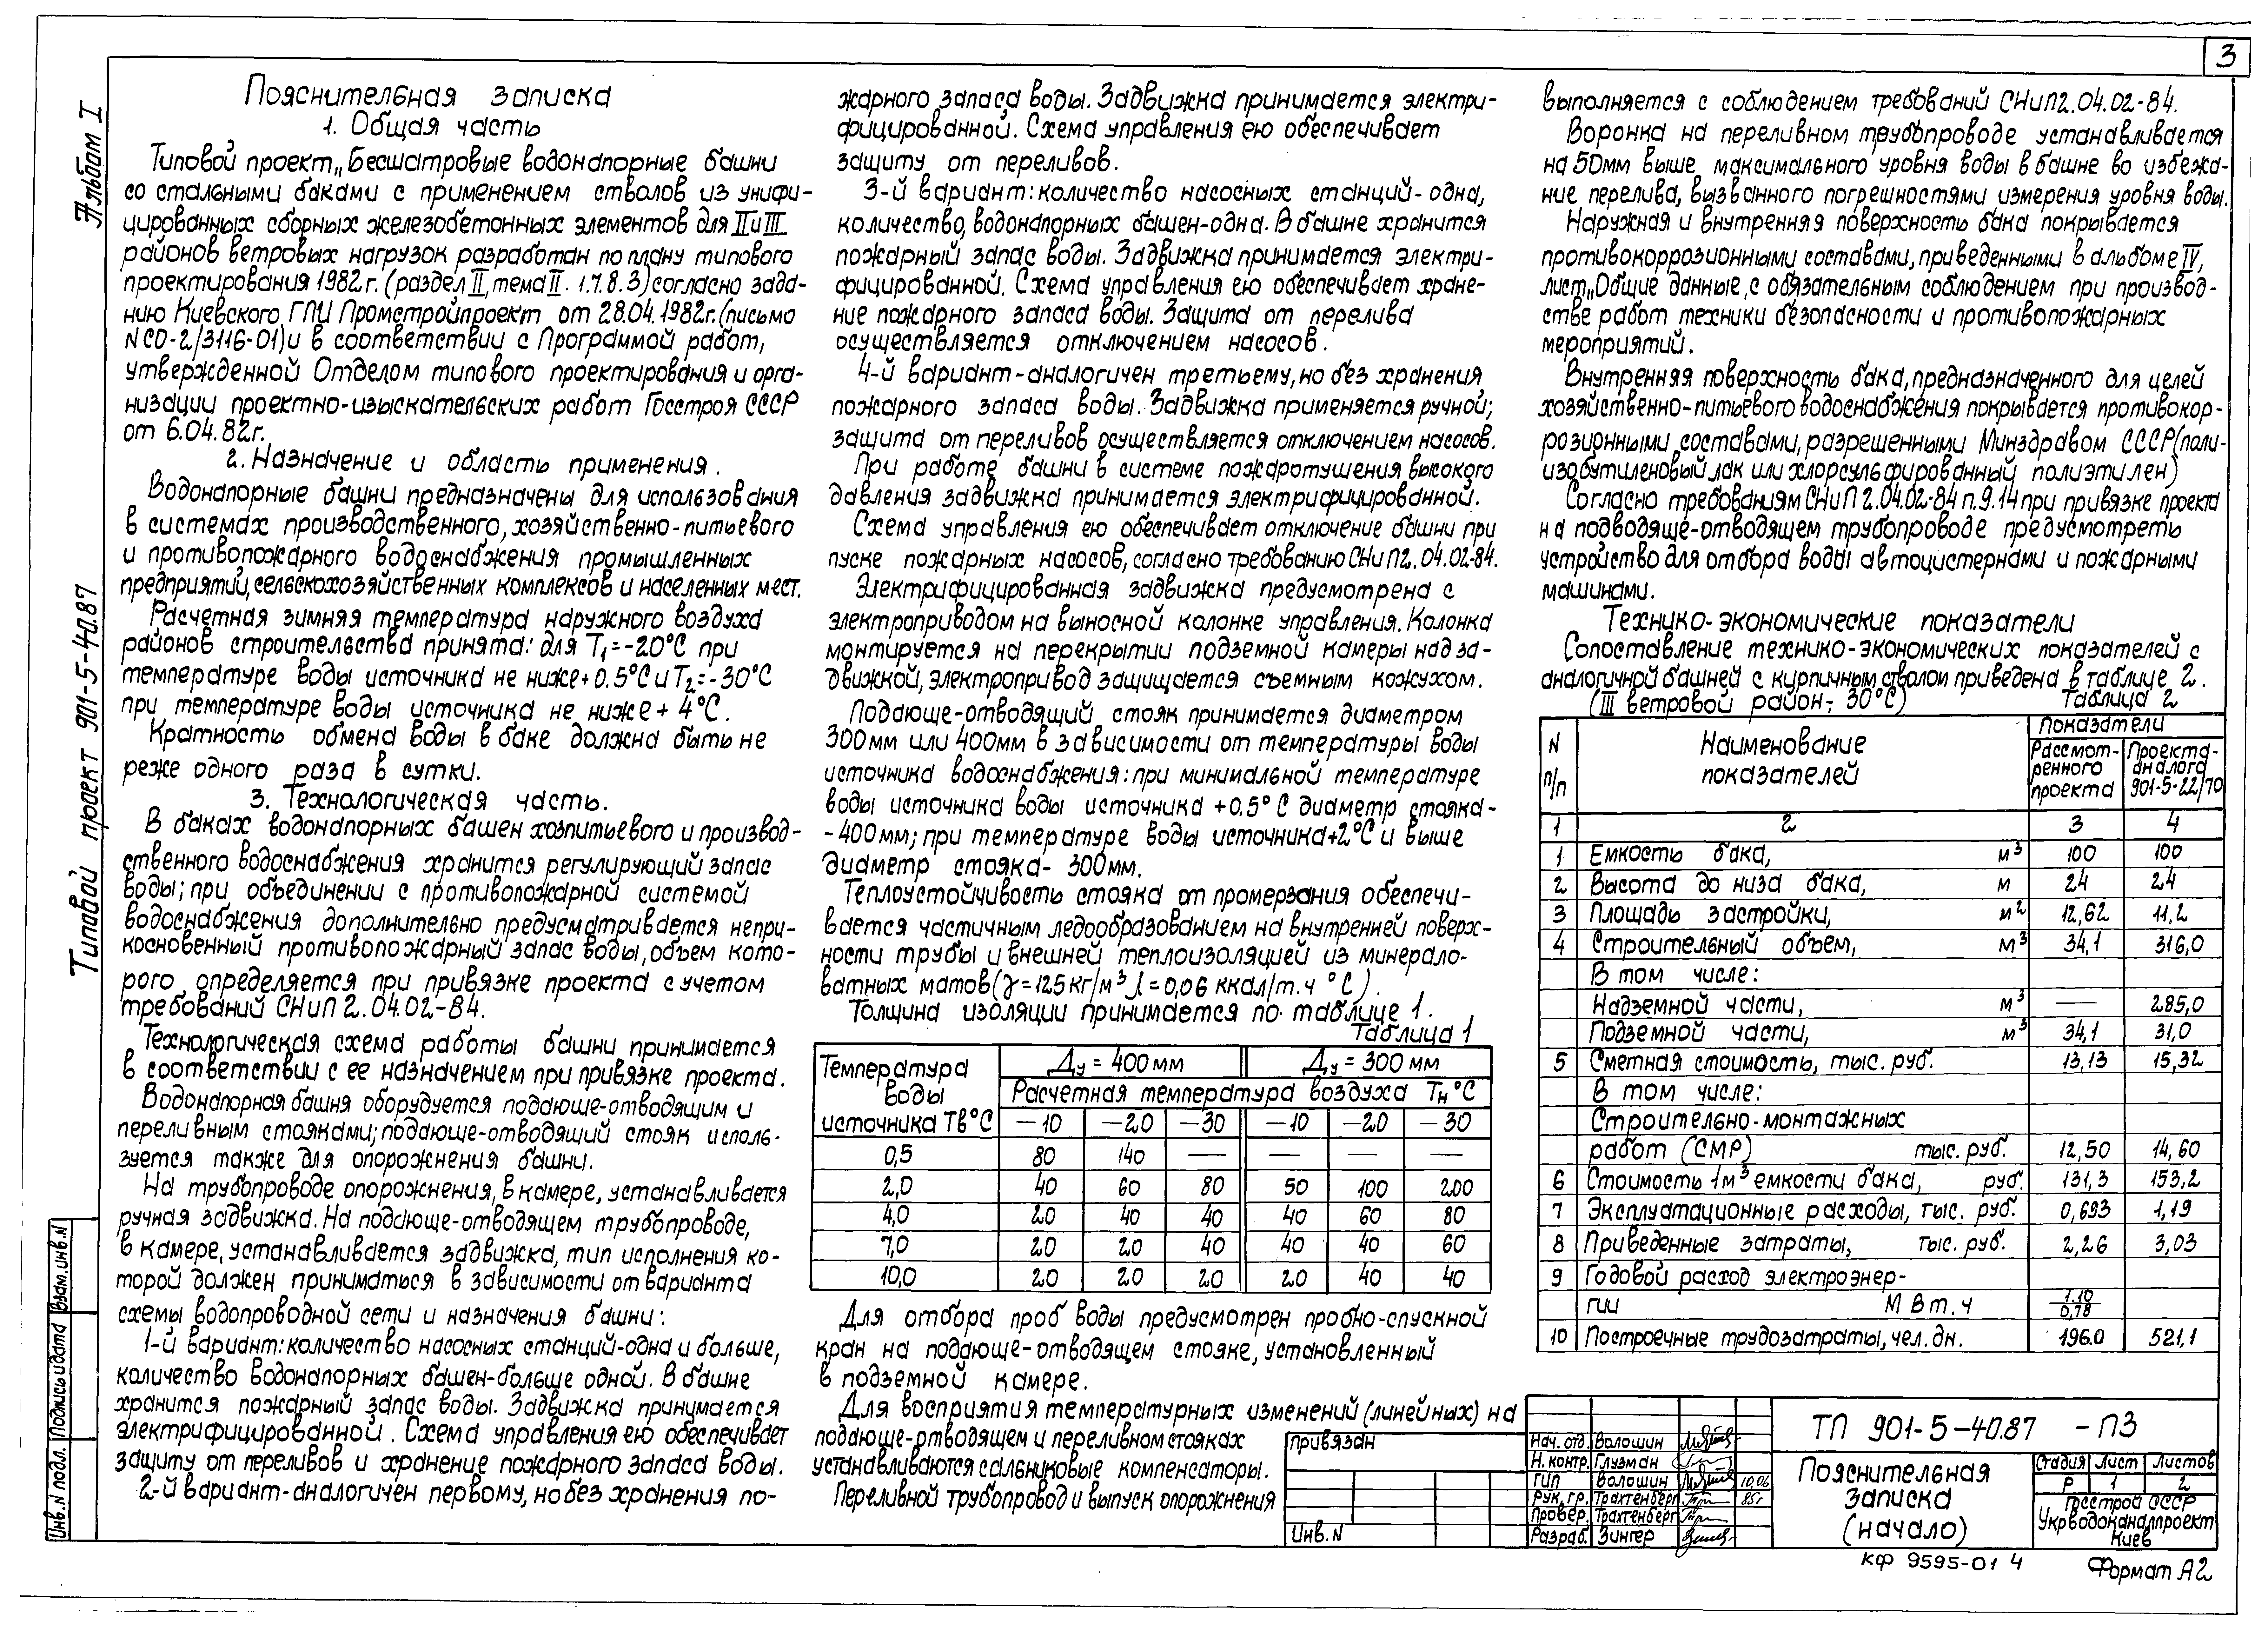 3
Альбом I
Типовой проект 901-5-40.87
Взам.инв.N
Подпись и дата
Инв.N подл.
Пояснительная записка
1. Общая часть
Типовой проект „Бесшатровые водонапорные башни
со стальными баками с применением стволов из унифи-
цированных сборных железобетонных элементов для II и III
районов ветровых нагрузок разработан по плану типового
проектирования 1982г. (раздел II, тема II. 1.7.8.3) согласно зада-
нию Киевского ГПИ Промстройпроект от 28.04.1982г. (письмо
NСО-2/3116-01) и в соответствии с Программой работ,
утвержденной Отделом типового проектирования и орга-
низации проектно-изыскательских работ Госстроя СССР
от 6.04.82г.
2. Назначение и область применения.
Водонапорные башни предназначены для использования
в системах производственного, хозяйственно-питьевого
и противопожарного водоснабжения промышленных
предприятий, сельскохозяйственных комплексов и населенных мест.
Расчетная зимняя температура наружного воздуха
районов строительства принята: для Т1=-20°С при
температуре воды источника не ниже+0.5°С и Т2=-30°С
при температуре воды источника не ниже + 4°С.
Кратность обмена воды в баке должна быть не
реже одного раза в сутки.
3. Технологическая часть.
В баках водонапорных башен хозпитьевого и производ-
ственного водоснабжения хранится регулирующий запас
воды; при объединении с противопожарной системой
водоснабжения дополнительно предусматривается непри-
косновенный противопожарный запас воды, объем кото-
рого определяется при привязке проекта с учетом
требований СНиП 2.04.02-84.
Технологическая схема работы башни принимается
в соответствии с ее назначением при привязке проекта.
Водонапорная башня оборудуется подающе-отводящим и
переливным стояками; подающе-отводящий стояк исполь-
зуется также для опорожнения башни.
На трубопроводе опорожнения, в камере, устанавливается
ручная задвижка. На подающе-отводящем трубопроводе,
в камере, устанавливается задвижка, тип исполнения ко-
торой должен приниматься в зависимости от варианта
схемы водопроводной сети и назначения башни:
1-й вариант: количество насосных станций-одна и больше,
количество водонапорных башен-больше одной. В башне
хранится пожарный запас воды. Задвижка принимается
электрифицированной. Схема управления ею обеспечивает
защиту от переливов и хранение пожарного запаса воды.
2-й вариант-аналогичен первому, но без хранения по-
жарного запаса воды. Задвижка принимается электри-
фицированной. Схема управления ею обеспечивает
защиту от переливов.
3-й вариант: количество насосных станций-одна,
количество водонапорных башен-одна. В башне хранится
пожарный запас воды. Задвижка принимается электри-
фицированной. Схема управления ею обеспечивает хране-
ние пожарного запаса воды. Защита от перелива
осуществляется отключением насосов.
4-й вариант-аналогичен третьему, но без хранения
пожарного запаса воды. Задвижка применяется ручной;
защита от переливов осуществляется отключением насосов.
При работе башни в системе пожаротушения высокого
давления задвижка принимается электрифицированной.
Схема управления ею обеспечивает отключение башни при
пуске пожарных насосов, согласно требованию СНиП2.04.02-84.
Электрифицированная задвижка предусмотрена с
электроприводом на выносной колонке управления. Колонка
монтируется на перекрытии подземной камеры над за-
движкой, электропривод защищается съемным кожухом.
Подающе-отводящий стояк принимается диаметром
300мм или 400мм в зависимости от температуры воды
источника водоснабжения: при минимальной температуре
воды источника воды источника +0.5°С диаметр стояка-
-400мм; при температуре воды источника+2°С и выше
диаметр стояка- 300мм.
Теплоустойчивость стояка от промерзания обеспечи-
вается частичным ледообразованием на внутренней поверх-
ности трубы и внешней теплоизоляцией из минерало-
ватных матов (γ=125кг/м³ λ=0,06 ккал/т.ч °С).
Толщина изоляции принимается по таблице 1.
Таблица 1
Температура воды источника Тв°С | Ду = 400 мм | Ду = 300 мм
Расчетная температура воздуха Тн°С
-10 | -20 | -30 | -10 | -20 | -30
0,5 | 80 | 140 | — | — | — | —
2,0 | 40 | 60 | 80 | 50 | 100 | 200
4,0 | 20 | 40 | 40 | 40 | 60 | 80
7,0 | 20 | 20 | 40 | 40 | 40 | 60
10,0 | 20 | 20 | 20 | 20 | 40 | 40
Для отбора проб воды предусмотрен пробно-спускной
кран на подающе-отводящем стояке, установленный
в подземной камере.
Для восприятия температурных изменений (линейных) на
подающе-отводящем и переливном стояках
устанавливаются сальниковые компенсаторы.
Переливной трубопровод и выпуск опорожнения
выполняется с соблюдением требований СНиП2.04.02-84.
Воронка на переливном трубопроводе устанавливается
на 50мм выше максимального уровня воды в башне во избежа-
ние перелива, вызванного погрешностями измерения уровня воды.
Наружная и внутренняя поверхность бака покрывается
противокоррозионными составами, приведенными в альбоме IV,
лист „Общие данные, с обязательным соблюдением при производ-
стве работ техники безопасности и противопожарных
мероприятий.
Внутренняя поверхность бака, предназначенного для целей
хозяйственно-питьевого водоснабжения покрывается противокор-
розионными составами, разрешенными Минздравом СССР (поли-
изобутиленовый лак или хлорсульфированный полиэтилен)
Согласно требованиям СНиП 2.04.02-84 п.9.14 при привязке проекта
на подводяще-отводящем трубопроводе предусмотреть
устройство для отбора воды автоцистернами и пожарными
машинами.
Технико-экономические показатели
Сопоставление технико-экономических показателей с
аналогичной башней с кирпичным стволом приведена в таблице 2.
(III ветровой район,- 30°С) Таблица 2
N п/п | Наименование показателей | Показатели
Рассмот-ренного проекта | Проекта-аналога 901-5-22/70
1 | 2 | 3 | 4
1 | Емкость бака, м³ | 100 | 100
2 | Высота до низа бака, м | 24 | 24
3 | Площадь застройки, м² | 12,62 | 11,2
4 | Строительный объем, м³ | 34,1 | 316,0
В том числе:
Надземной части, м³ | — | 285,0
Подземной части, м³ | 34,1 | 31,0
5 | Сметная стоимость, тыс. руб. | 13,13 | 15,32
В том числе:
Строительно-монтажных
работ (СМР) тыс. руб. | 12,50 | 14,60
6 | Стоимость 1м³ емкости бака, руб. | 131,3 | 153,2
7 | Эксплуатационные расходы, тыс. руб. | 0,693 | 1,19
8 | Приведенные затраты, тыс. руб. | 2,26 | 3,03
9 | Годовой расход электроэнер-
гии МВт.ч | 1.10/0,78
10 | Построечные трудозатраты, чел. дн. | 196.0 | 521,1
Привязан
Инв.N
Нач. отд. Волошин
Н. контр. Глузман
ГИП Волошин 10.06
Рук. гр. Трахтенберг 85г
Провер. Трахтенберг
Разраб. Зингер
ТП 901-5-40.87 -ПЗ
Пояснительная
записка
(начало)
Стадия Лист Листов
Р 1 2
Госстрой СССР
Укрводоканалпроект
Киев
КФ 9595-01 4
Формат А2